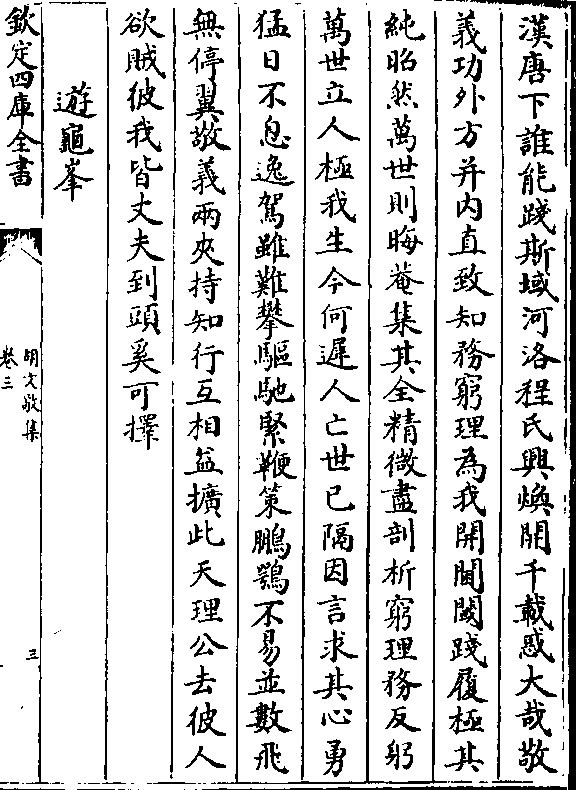 漢唐下誰能踐斯域河洛程氏興煥開千載惑大哉敬
義功外方并内直致知務窮理為我開閫閾踐履極其
純昭然萬世則晦菴集其全精微盡剖析窮理務反躬
萬世立人極我生今何遲人亡世已隔因言求其心勇
猛日不息逸駕雖難攀驅馳緊鞭策鵬鶚不易並數飛
無停翼敬義兩夾持知行互相益擴此天理公去彼人
欲賊彼我皆丈夫到頭奚可擇
遊龜峯
欽定四庫全書
胡文敬集
卷三
三